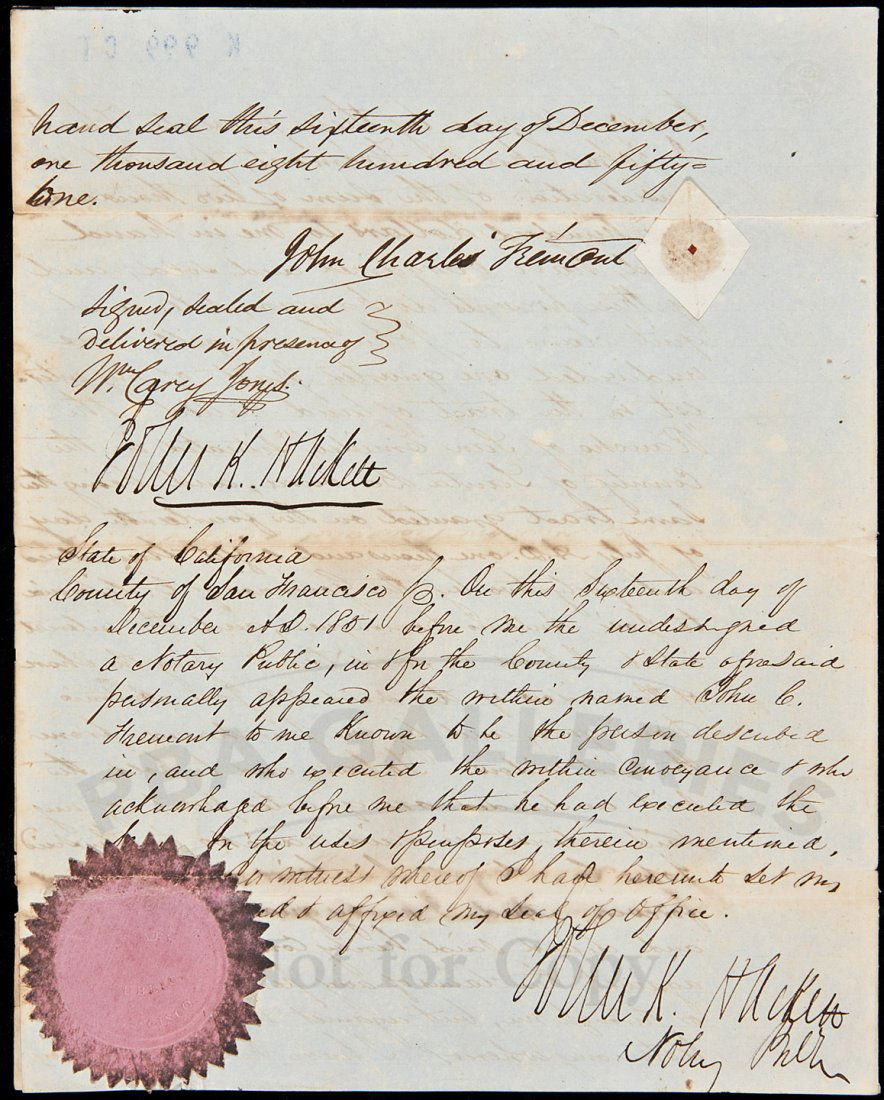 hand seal this sixteenth day of December,
one thousand eight hundred and fifty=
one.
John Charles Fremont
signed, sealed and
delivered in presence of
Wm Carey Jones.
K. Hackett
State of California
County of San Francisco On this Sixteenth day of
December A.D. 1851 before me the undersigned
a Notary Public, in & for the County & State aforesaid
personally appeared the within named John C.
Fremont to me Known to be the person described
in, and who executed the within conveyance & who
acknowledged before me that he had executed the
for the uses & purposes therein mentioned,
In witness whereof I have hereunto set my
hand & affixed my seal of office.
K. Hackett
Notary Public
PBA GALLERIES
Not for Copy